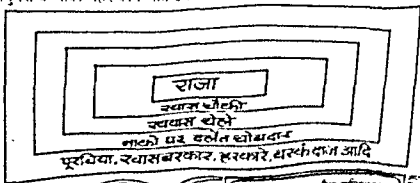 राजा
खास चौकी
खवास चेले
नाको पर दलेत चोबदार
पूरबिया, खासबरकार, हरकारे, बरकंदाज आदि